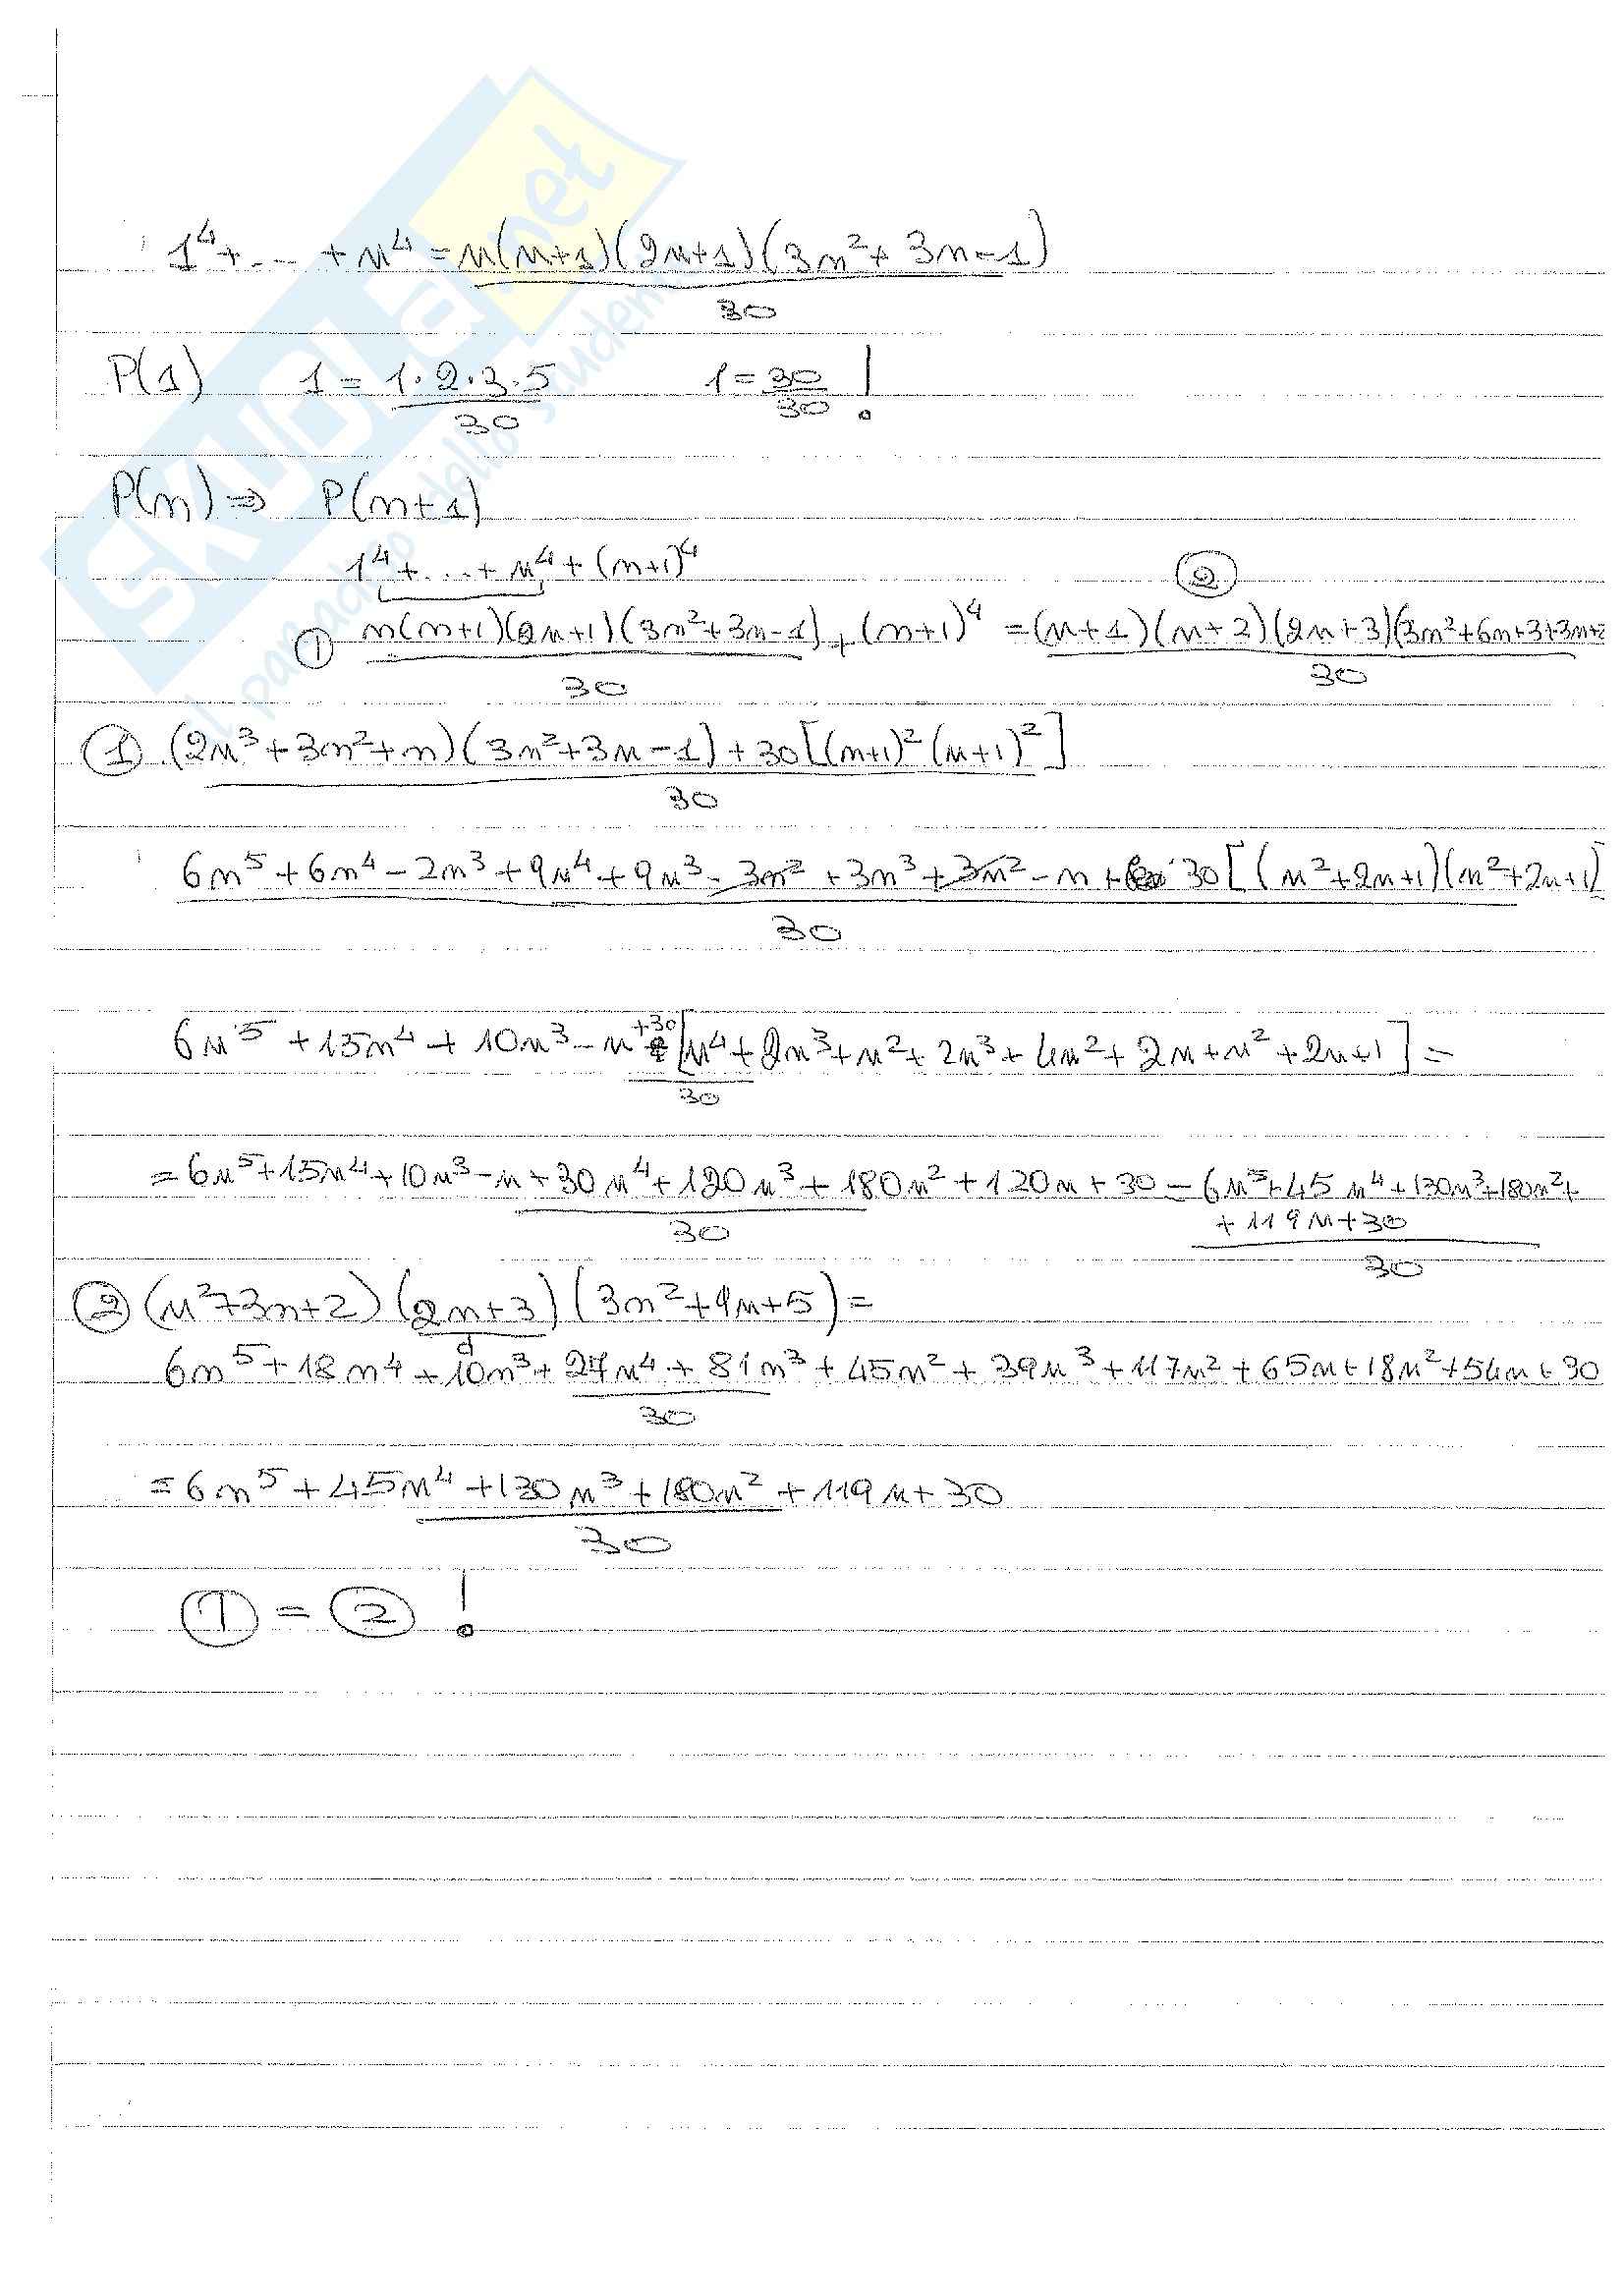 SKUOLA.net
il paradiso dallo studente
1⁴+...+n⁴ = n(n+1)(2n+1)(3n²+3n-1)
30
P(1) 1 = 1·2·3·5 1 = 30 !
30 30
P(n) ⇒ P(n+1)
1⁴+...+n⁴+(n+1)⁴
②
① n(n+1)(2n+1)(3n²+3n-1) + (n+1)⁴ = (n+1)(n+2)(2n+3)(3n²+6n+3+3n+2
30 30
① (2n³+3n²+n)(3n²+3n-1)+30[(n+1)²(n+1)²]
30
6n⁵+6n⁴-2n³+9n⁴+9n³-3n²+3n³+3n²-n+30[(n²+2n+1)(n²+2n+1)]
30
6n⁵+15n⁴+10n³-n+30[n⁴+2n³+n²+2n³+4n²+2n+n²+2n+1]=
30
=6n⁵+15n⁴+10n³-n+30n⁴+120n³+180n²+120n+30 = 6n⁵+45n⁴+130n³+180n²+
+119n+30
30 30
② (n²+3n+2)(2n+3)(3n²+9n+5)=
6n⁵+18n⁴+10n³+27n⁴+81n³+45n²+39n³+117n²+65n+18n²+54n+30
30
=6n⁵+45n⁴+130n³+180n²+119n+30
30
① = ② !